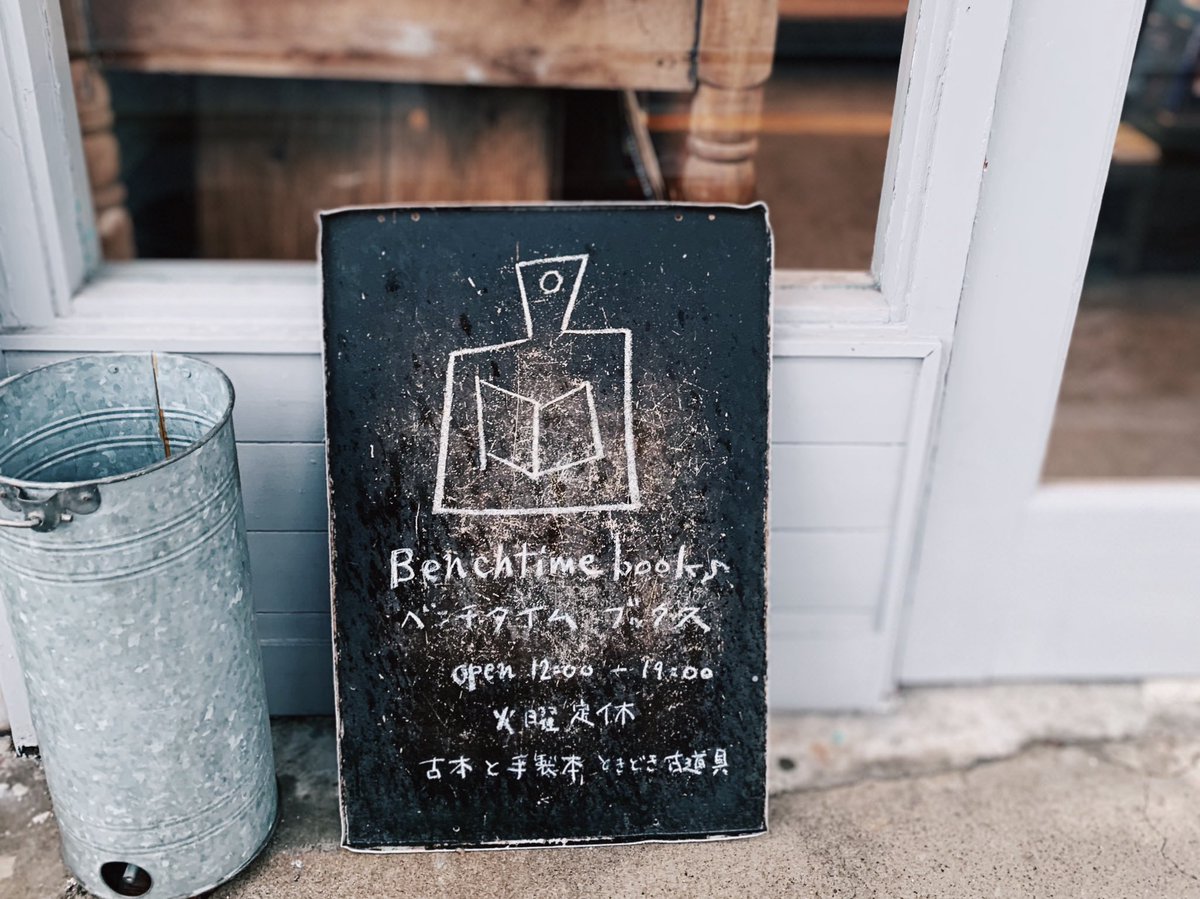 Benchtime books
ベンチタイム ブックス
open 12:00 - 19:00
火曜定休
古本と手製本 ときどき古道具